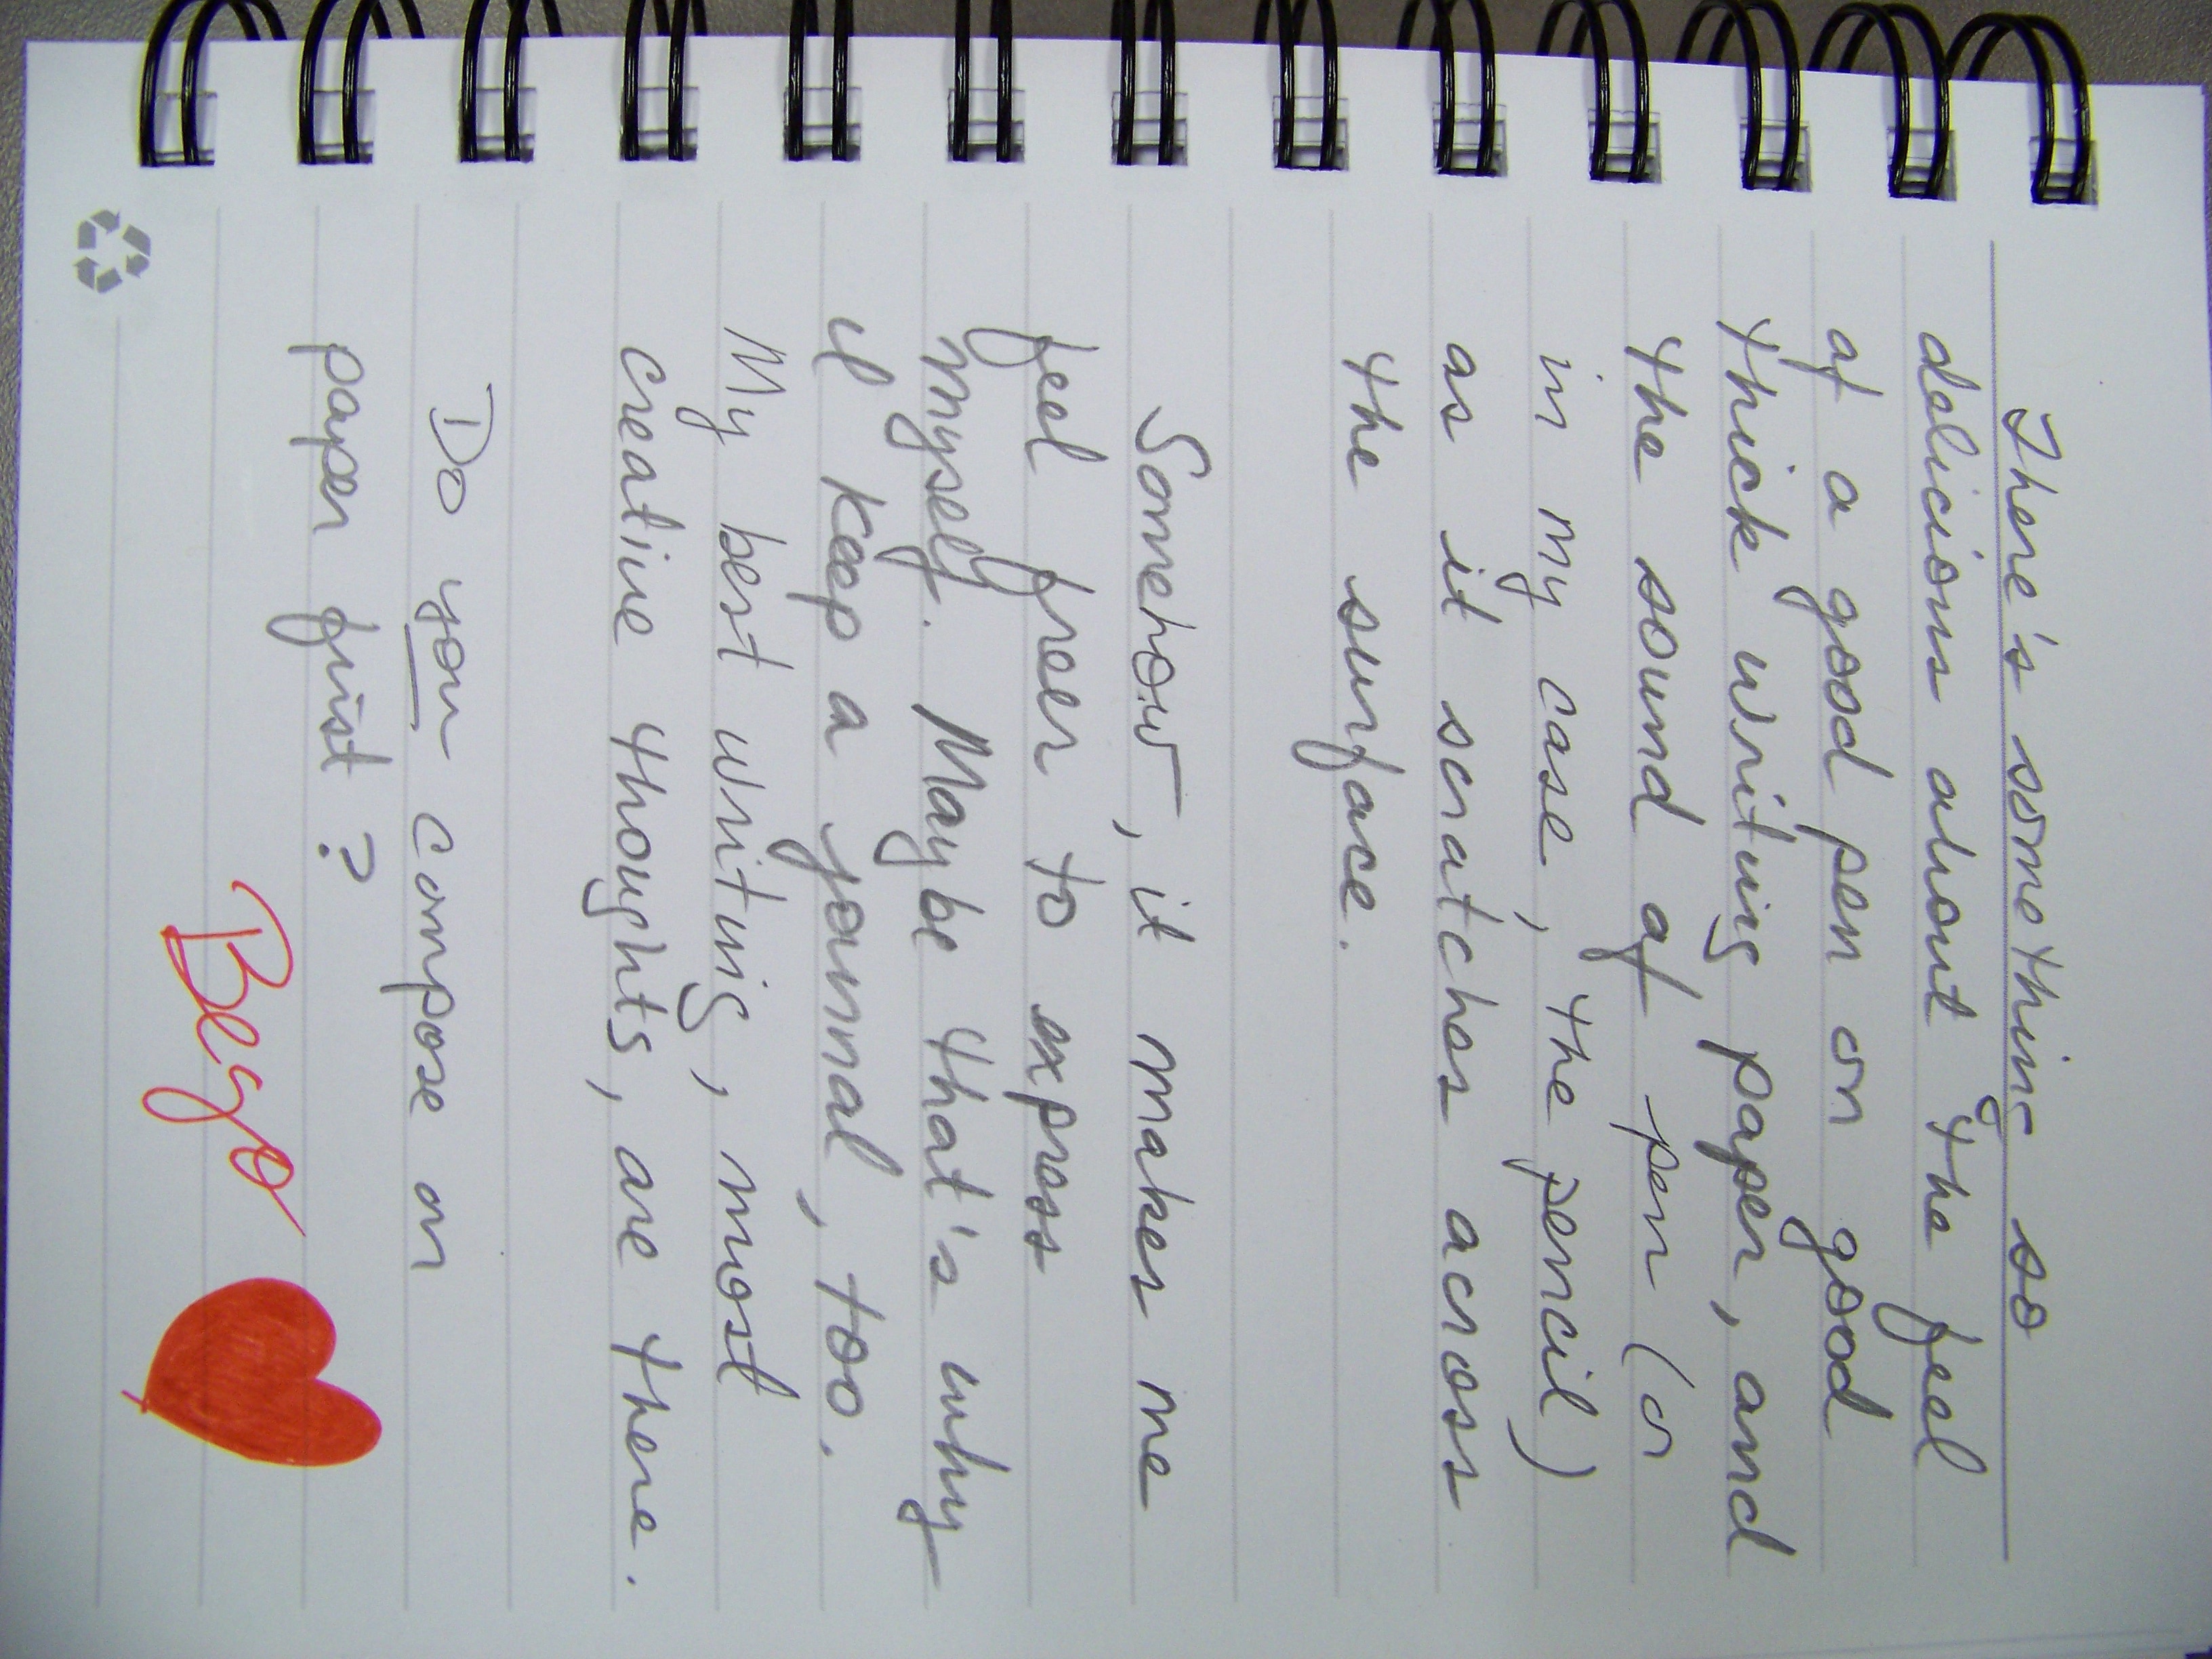 There's something so
delicious about the feel
of a good pen on good
thick writing paper, and
the sound of pen (or
in my case, the pencil)
as it scratches across
the surface.
Somehow, it makes me
feel freer to express
myself. Maybe that's why
I keep a journal, too.
My best writing, most
creative thoughts, are there.
Do you compose on
paper first?
Bego